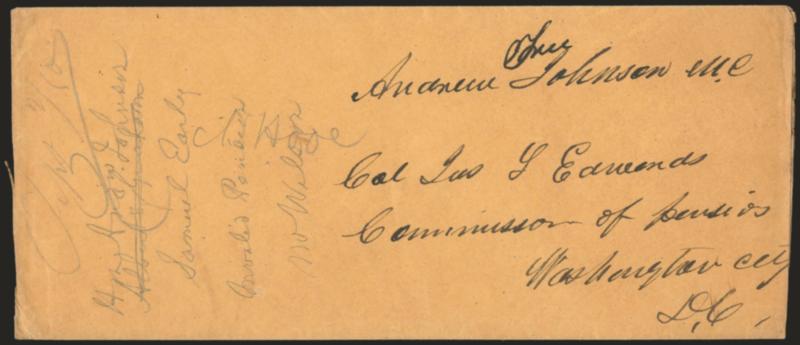 Free
Andrew Johnson M.C
Col Jas L Edwards
Commissoner of pensios
Washington city
D.C.
Hon Andw Johnson
Samuel Early
Invalid Pension